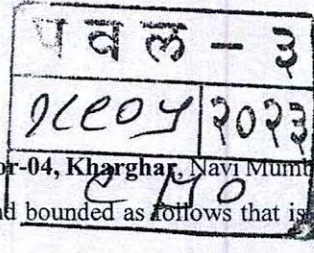 पवल - ३
२०२३
or-04, Kharghar, Navi Mumb
nd bounded as follows that is